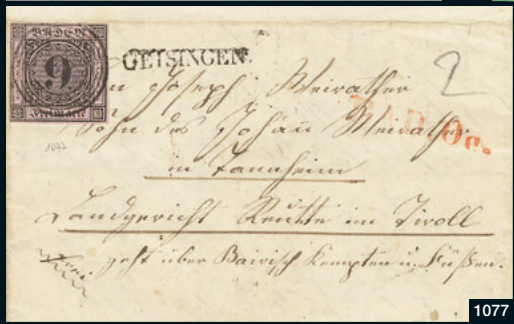 BADEN
9
Freimarke
GEISINGEN.
2
An Joseph Weirather
BAD. Oc.
Sohn des Johañ Weirather
1077
in Tannheim
Landgericht Reutte im Tiroll
geht über Bairisch Kempten u. Füßen.
frei
1077